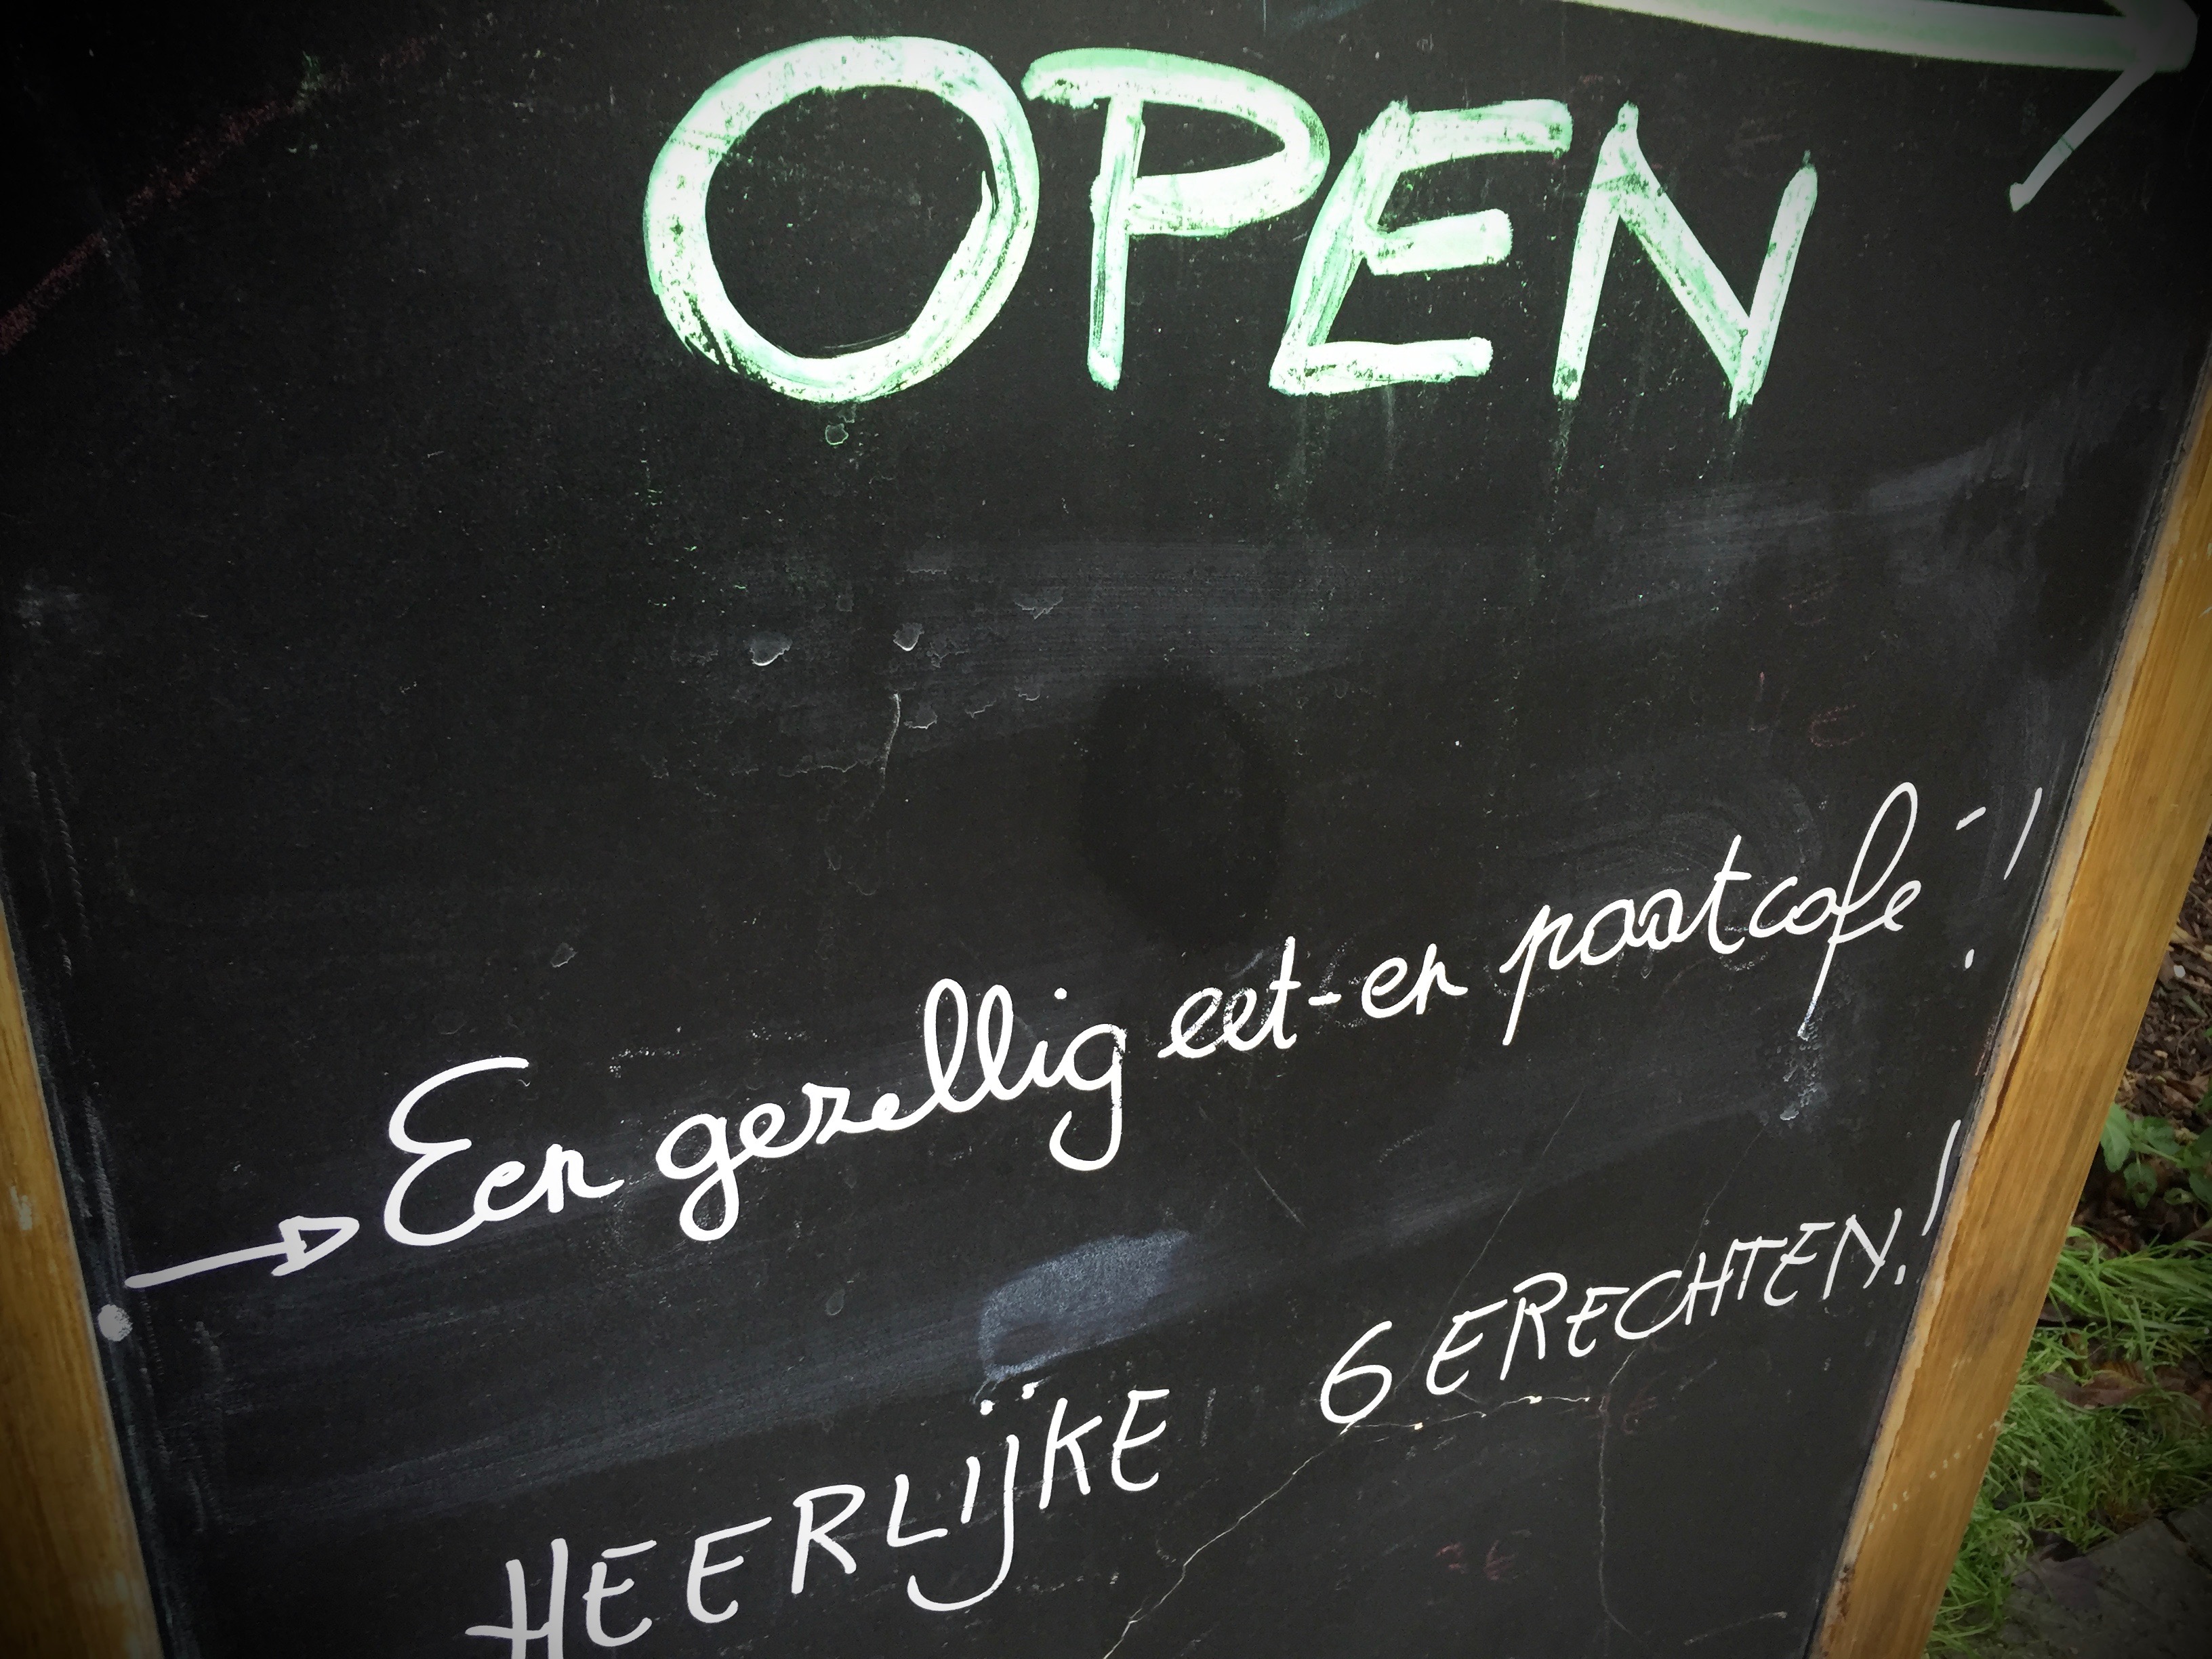 OPEN
Een gezellig eet-en praatcafe!
HEERLIJKE GERECHTEN!